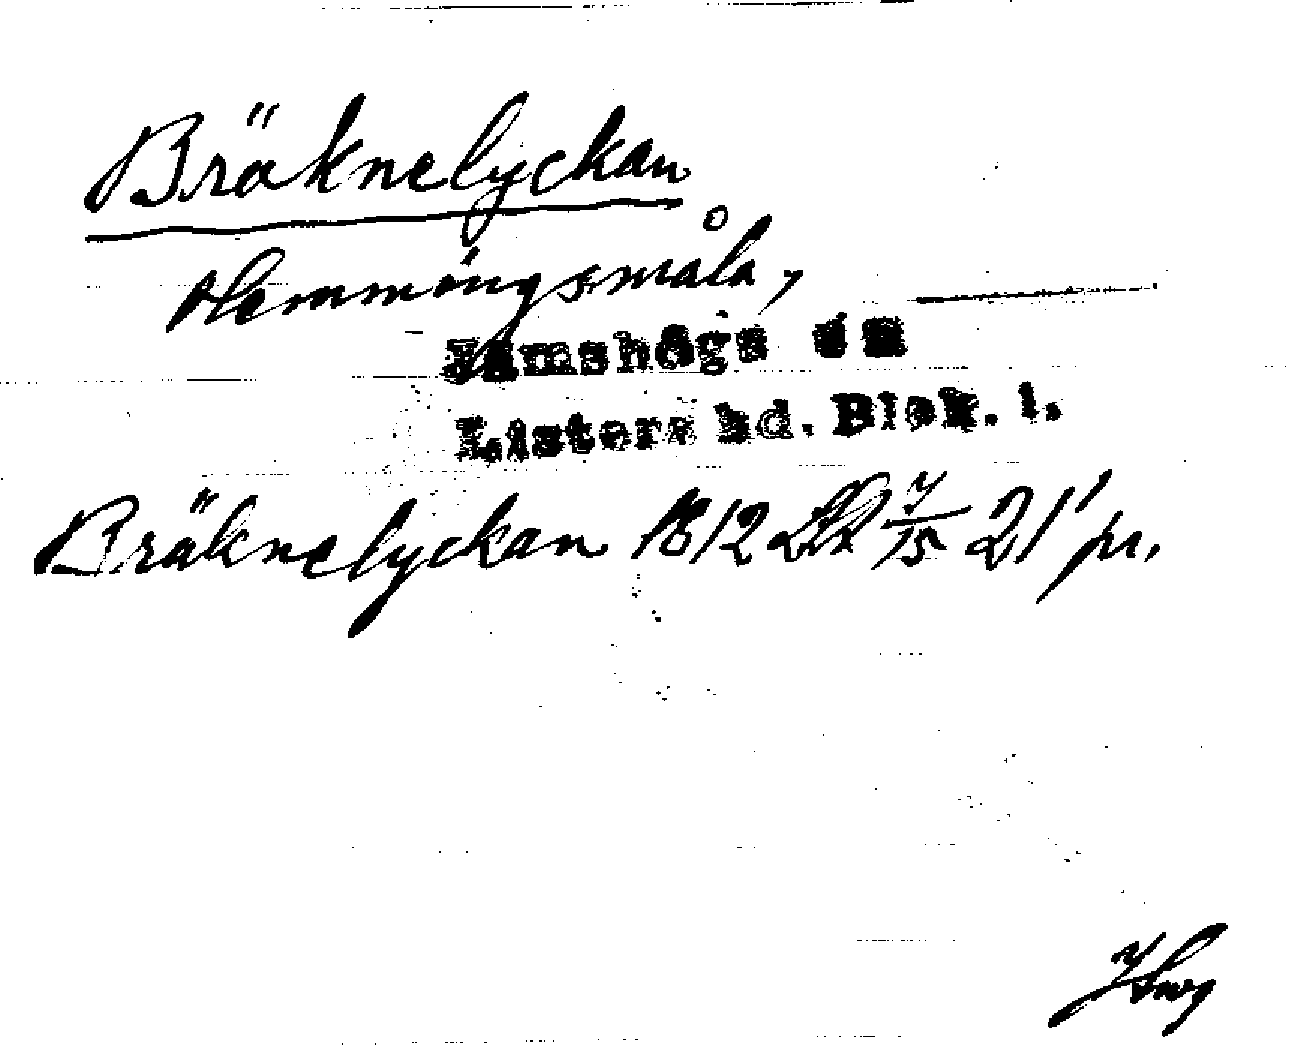 Bräknelyckan
Hemmingsmåla,
Jämshögs sn
Listers hd. Blek. l.
Bräknelyckan 1812 LLR 7/15 21' pr.